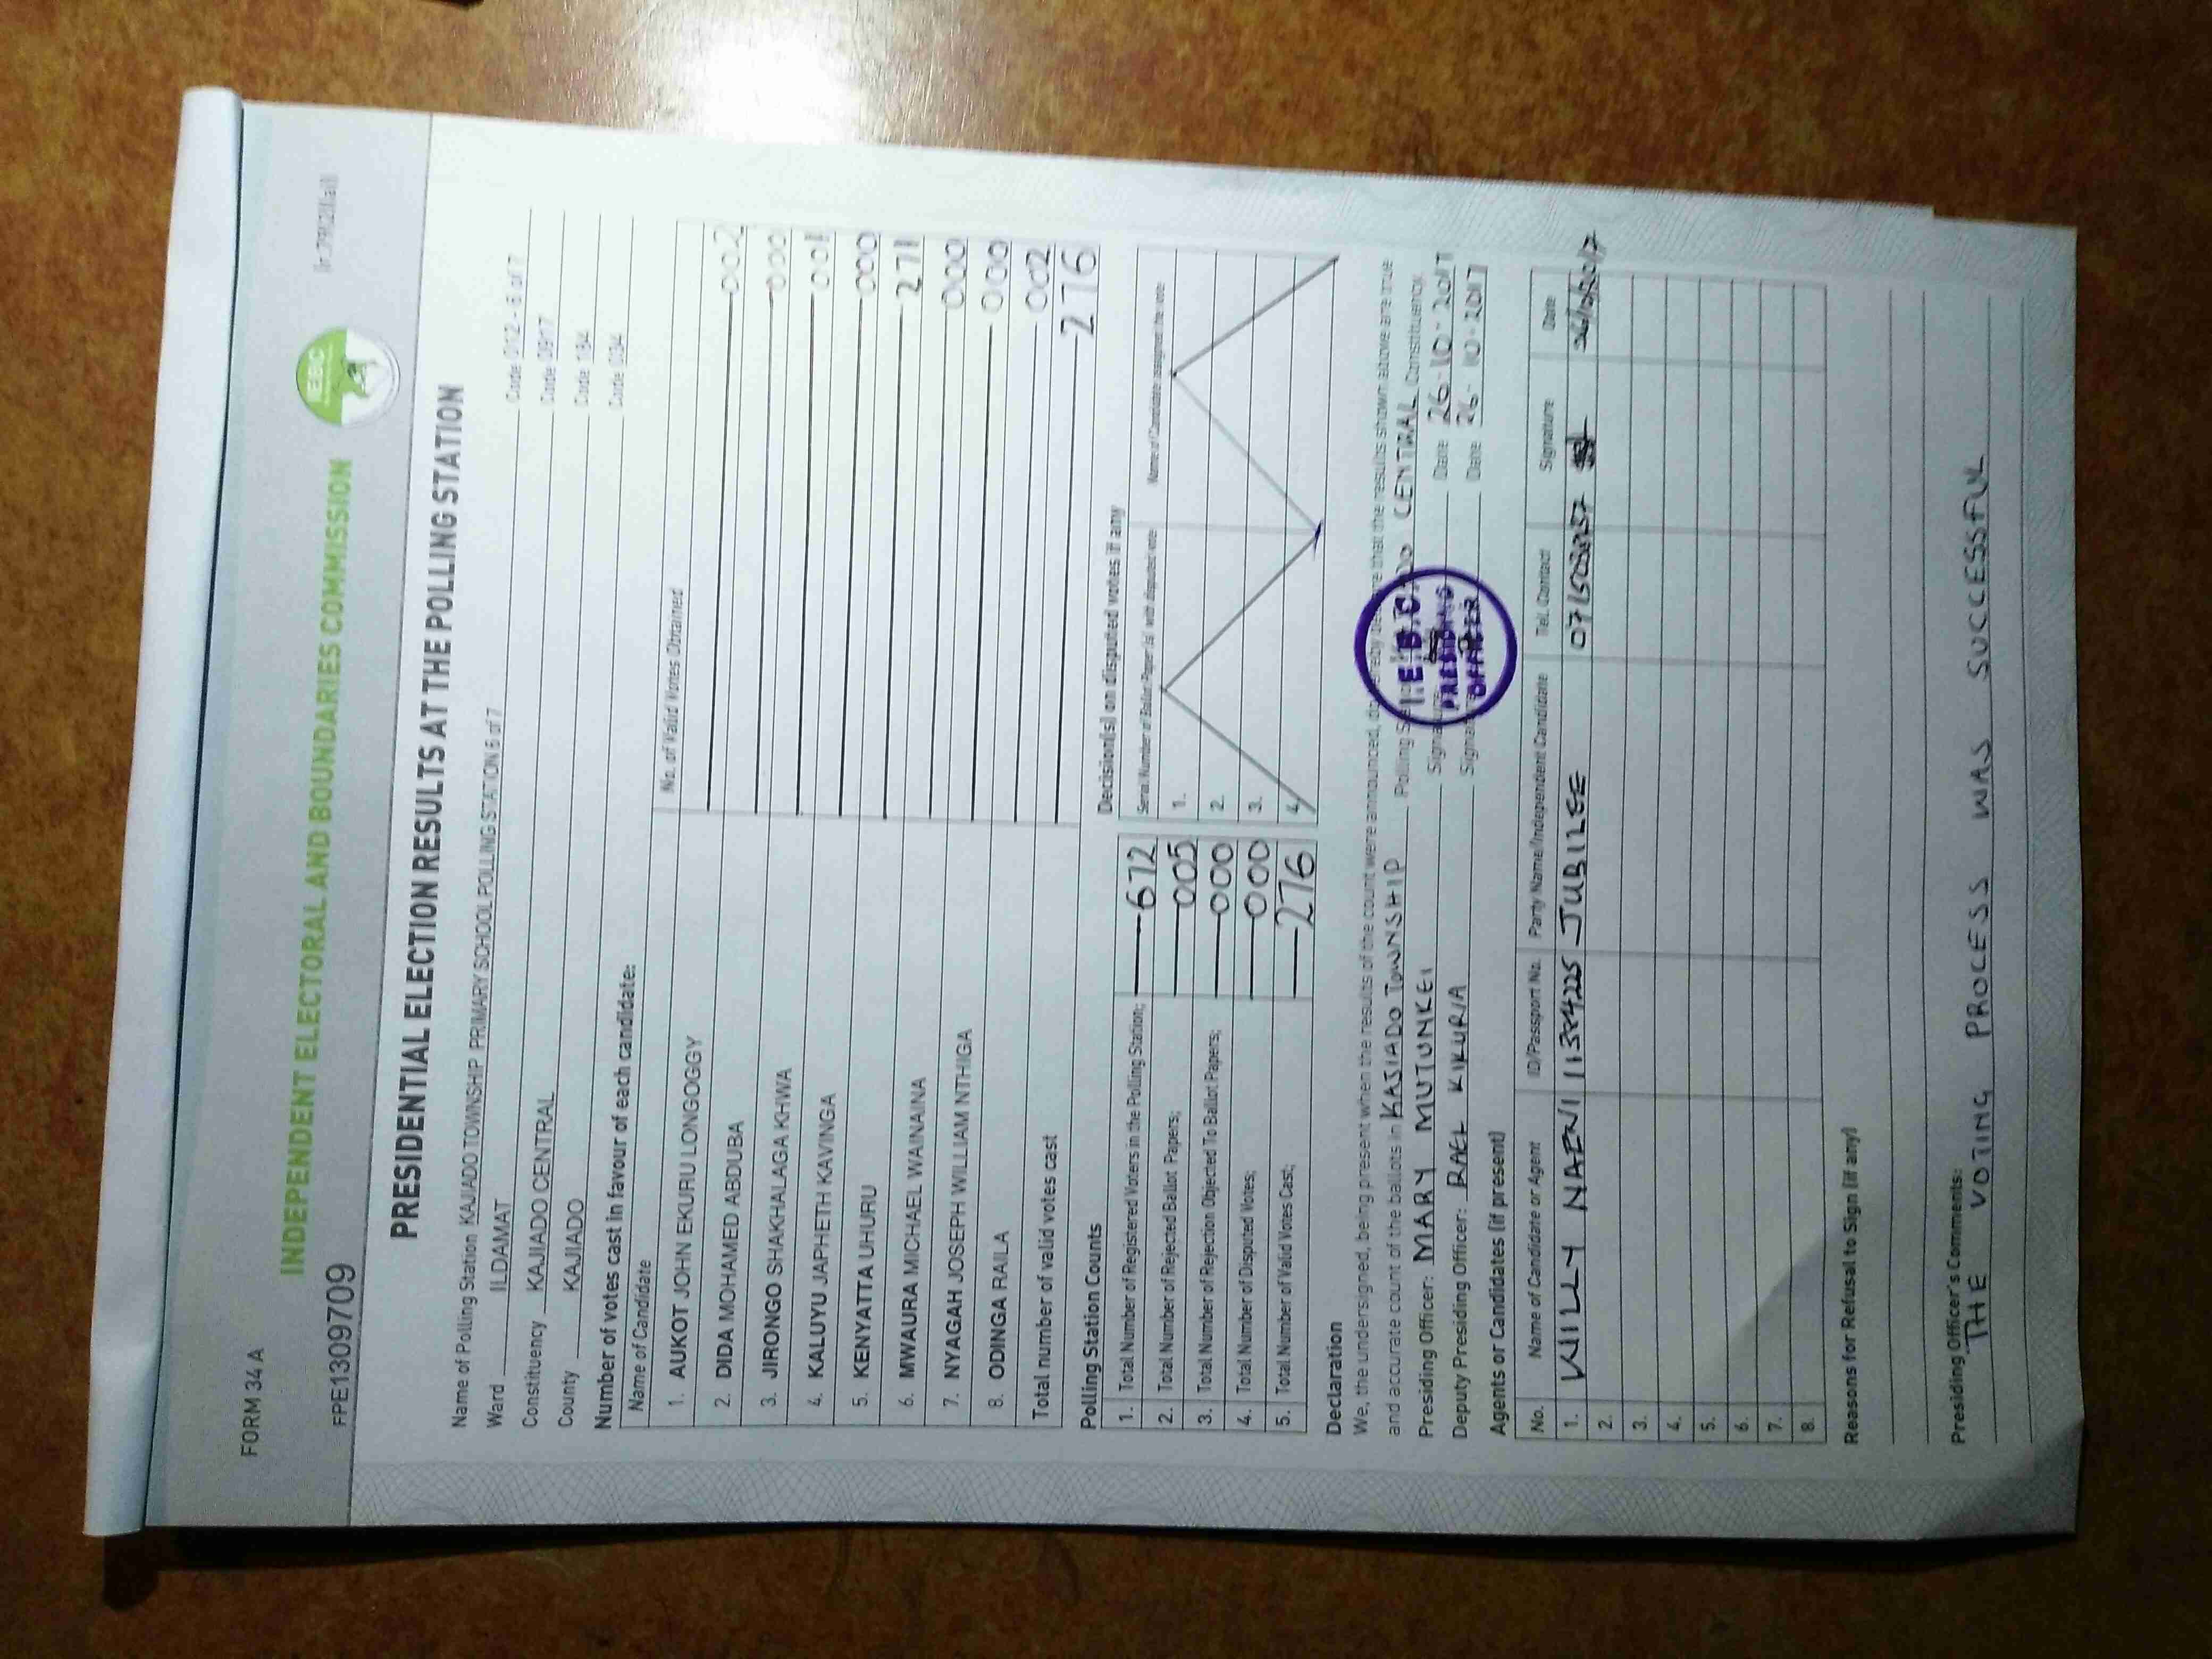 FORM 34 A
INDEPENDENT ELECTORAL AND BOUNDARIES COMMISSION
IEBC
FPE1309709
PRESIDENTIAL ELECTION RESULTS AT THE POLLING STATION
Name of Polling Station KAJIADO TOWNSHIP PRIMARY SCHOOL POLLING STATION 6 of 7 Code 012 - 6 of 7
Ward ILDAMAT Code 0917
Constituency KAJIADO CENTRAL Code 184
County KAJIADO Code 034
Number of votes cast in favour of each candidate:
Name of Candidate No. of Valid Votes Obtained
1. AUKOT JOHN EKURU LONGOGGY 002
2. DIDA MOHAMED ABDUBA 000
3. JIRONGO SHAKHALAGA KHWA 001
4. KALUYU JAPHETH KAVINGA 000
5. KENYATTA UHURU 271
6. MWAURA MICHAEL WAINAINA 000
7. NYAGAH JOSEPH WILLIAM NTHIGA 000
8. ODINGA RAILA 002
Total number of valid votes cast 276
Polling Station Counts
1. Total Number of Registered Voters in the Polling Station; 672
2. Total Number of Rejected Ballot Papers; 005
3. Total Number of Rejection Objected To Ballot Papers; 000
4. Total Number of Disputed Votes; 000
5. Total Number of Valid Votes Cast; 276
Decision(s) on disputed votes if any
Serial Number of Ballot Paper (s) with disputed vote Name of Candidate assigned the vote
1.
2.
3.
4.
Declaration
We, the undersigned, being present when the results of the count were announced, do hereby declare that the results shown above are true
and accurate count of the ballots in KAJIADO TOWNSHIP Polling CENTRAL Constituency.
Presiding Officer: MARY MUTUNKEI Date 26-10-2017
Deputy Presiding Officer: RAEL KIKURIA Date 26-10-2017
I.E.B.C.
PRESIDING
OFFICER
Agents or Candidates (if present)
No. Name of Candidate or Agent ID/Passport No. Party Name/Independent Candidate Tel. Contact Signature Date
1. WILLY JUBILEE
2.
3.
4.
5.
6.
7.
8.
Reasons for Refusal to Sign (if any)
Presiding Officer's Comments:
THE VOTING PROCESS WAS SUCCESSFUL